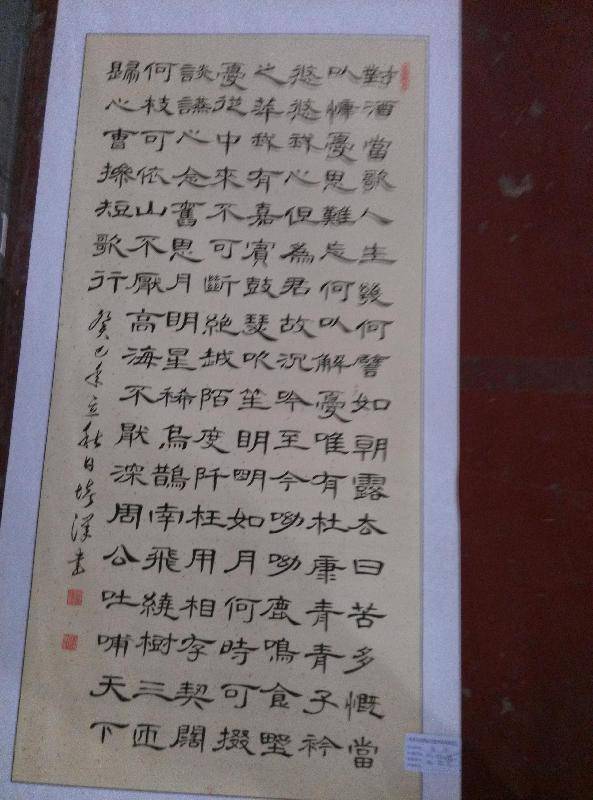 對酒當歌人生幾何譬如朝露去日苦多慨當
以慷憂思難忘何以解憂唯有杜康青青子衿
悠悠我心但為君故沉吟至今呦呦鹿鳴食野
之苹我有嘉賓鼓瑟吹笙明明如月何時可掇
憂從中來不可斷絕越陌度阡枉用相存契闊
談讌心念舊恩月明星稀烏鵲南飛繞樹三匝
何枝可依山不厭高海不厭深周公吐哺天下
歸心曹操短歌行癸巳年立秋日書